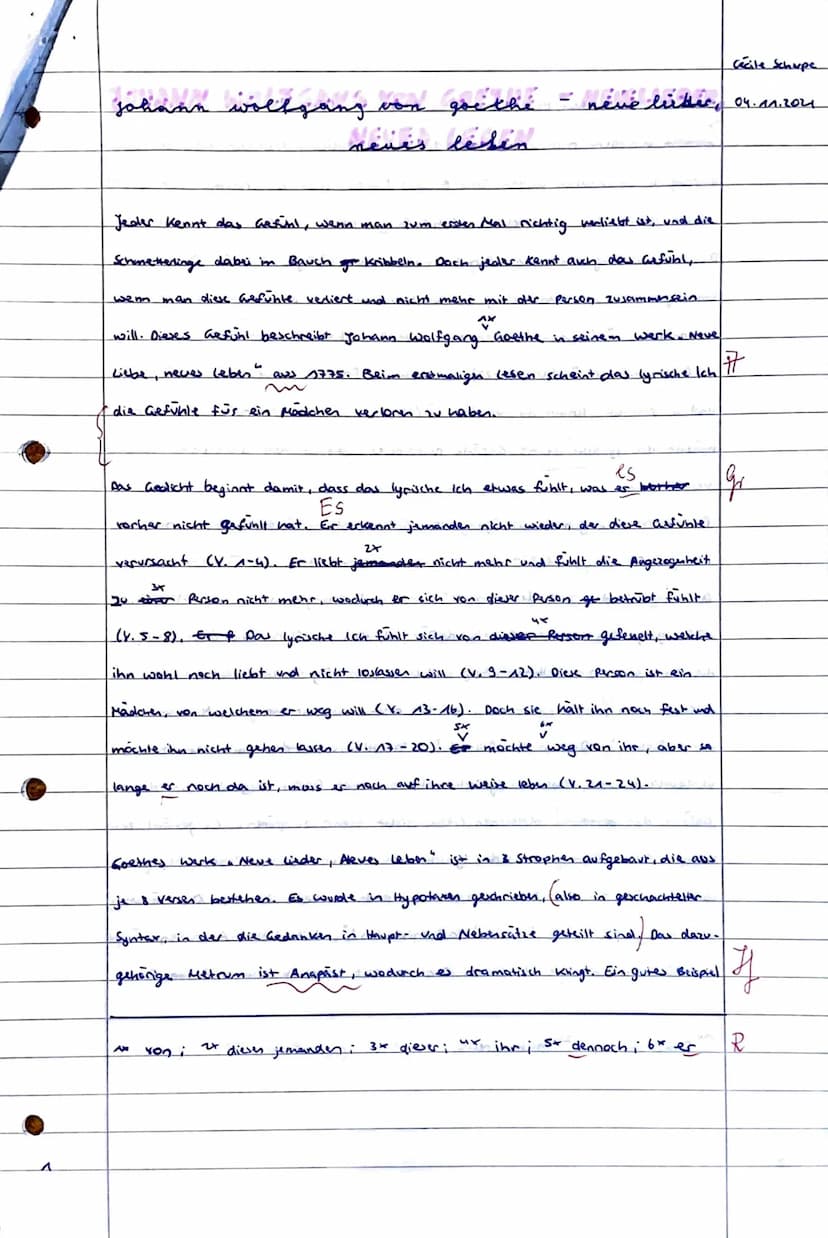 Cécile Schupe
johann wolfgang von goethe - neue lieder, 04.11.2021
neues leben
Jeder kennt das Gefühl, wenn man zum ersten Mal richtig verliebt ist, und die
Schmetterlinge dabei im Bauch kribbeln. Doch jeder kennt auch das Gefühl,
wenn man diese Gefühle verliert und nicht mehr mit der Person zusammensein
1x
will. Dieses Gefühl beschreibt Johann Wolfgang Goethe in seinem Werk „Neue
Liebe, neues Leben“ aus 1775. Beim erstmaligen Lesen scheint das lyrische Ich
die Gefühle für ein Mädchen verloren zu haben.
es Gr
Das Gedicht beginnt damit, dass das lyrische Ich etwas fühlt, was er vorher
Es
vorher nicht gefühlt hat. Er erkennt jemanden nicht wieder, der diese Gefühle
2x
verursacht (V. 1-4). Er liebt jemanden nicht mehr und fühlt die Angezogenheit
3x
zu einer Person nicht mehr, wodurch er sich von dieser Person betrübt fühlt
4x
(V. 5-8). Das lyrische Ich fühlt sich von dieser Person gefesselt, welche
ihn wohl noch liebt und nicht loslassen will (V. 9-12). Diese Person ist ein
Mädchen, von welchem er weg will (V. 13-16). Doch sie hält ihn noch fest und
5x 6x
möchte ihn nicht gehen lassen (V. 17-20). Er möchte weg von ihr, aber so
lange er noch da ist, muss er noch auf ihre Weise leben (V. 21-24).
Goethes Werk „Neue Lieder, Neues Leben“ ist in 3 Strophen aufgebaut, die aus
je 8 Versen bestehen. Es wurde in Hypotaxen geschrieben, (also in geschachtelter
Syntax, in der die Gedanken in Haupt- und Nebensätze geteilt sind.) Das dazu-
gehörige Metrum ist Anapäst, wodurch es dramatisch klingt. Ein gutes Beispiel
1x von; 2x diesen jemanden; 3x dieser; 4x ihr; 5x dennoch; 6x er R
1